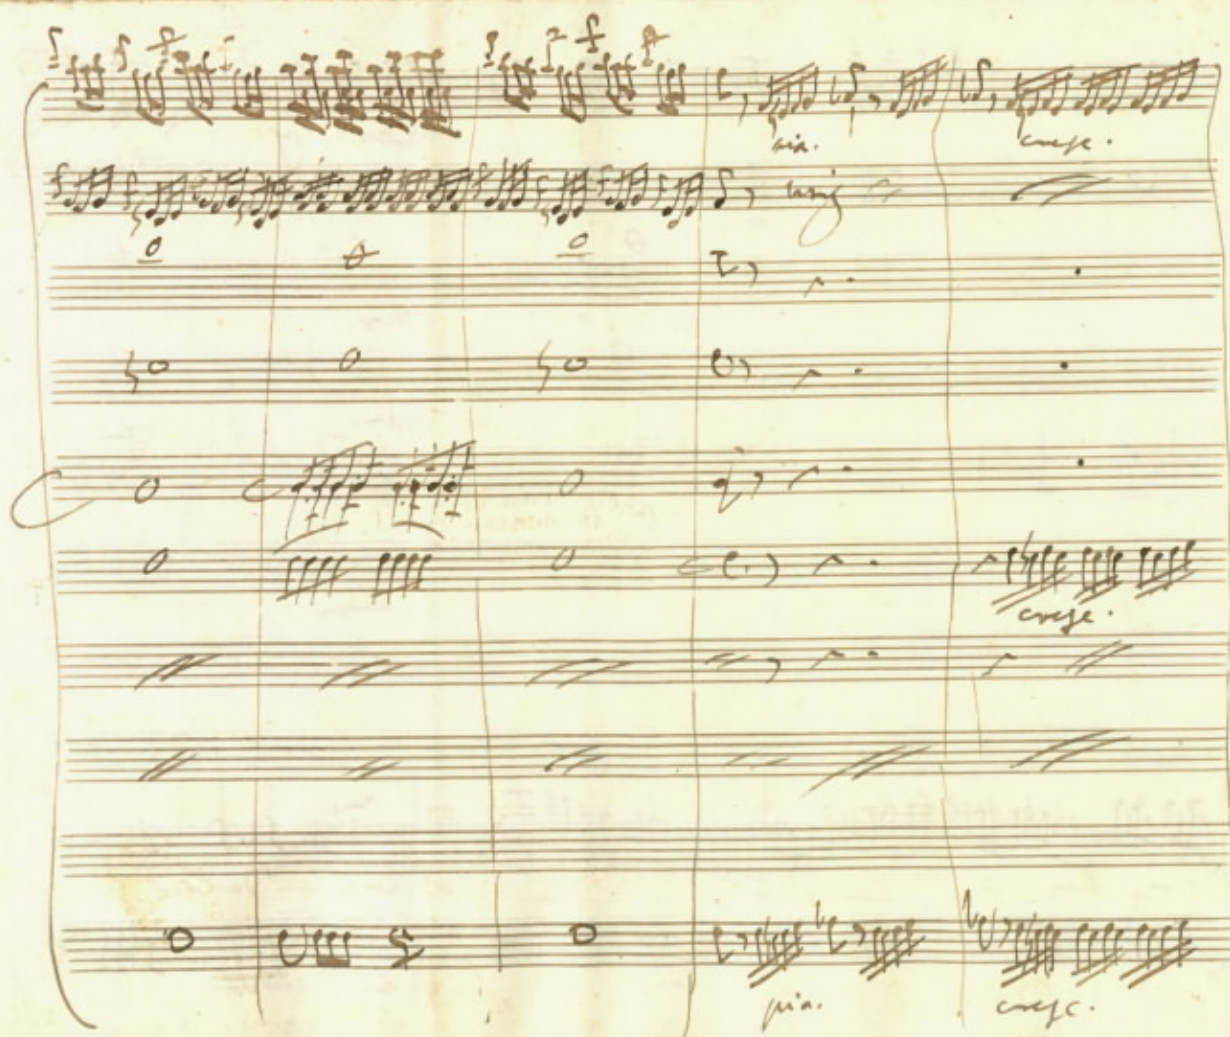 pia.
cresc.
unis
cresc.
pia.
cresc.